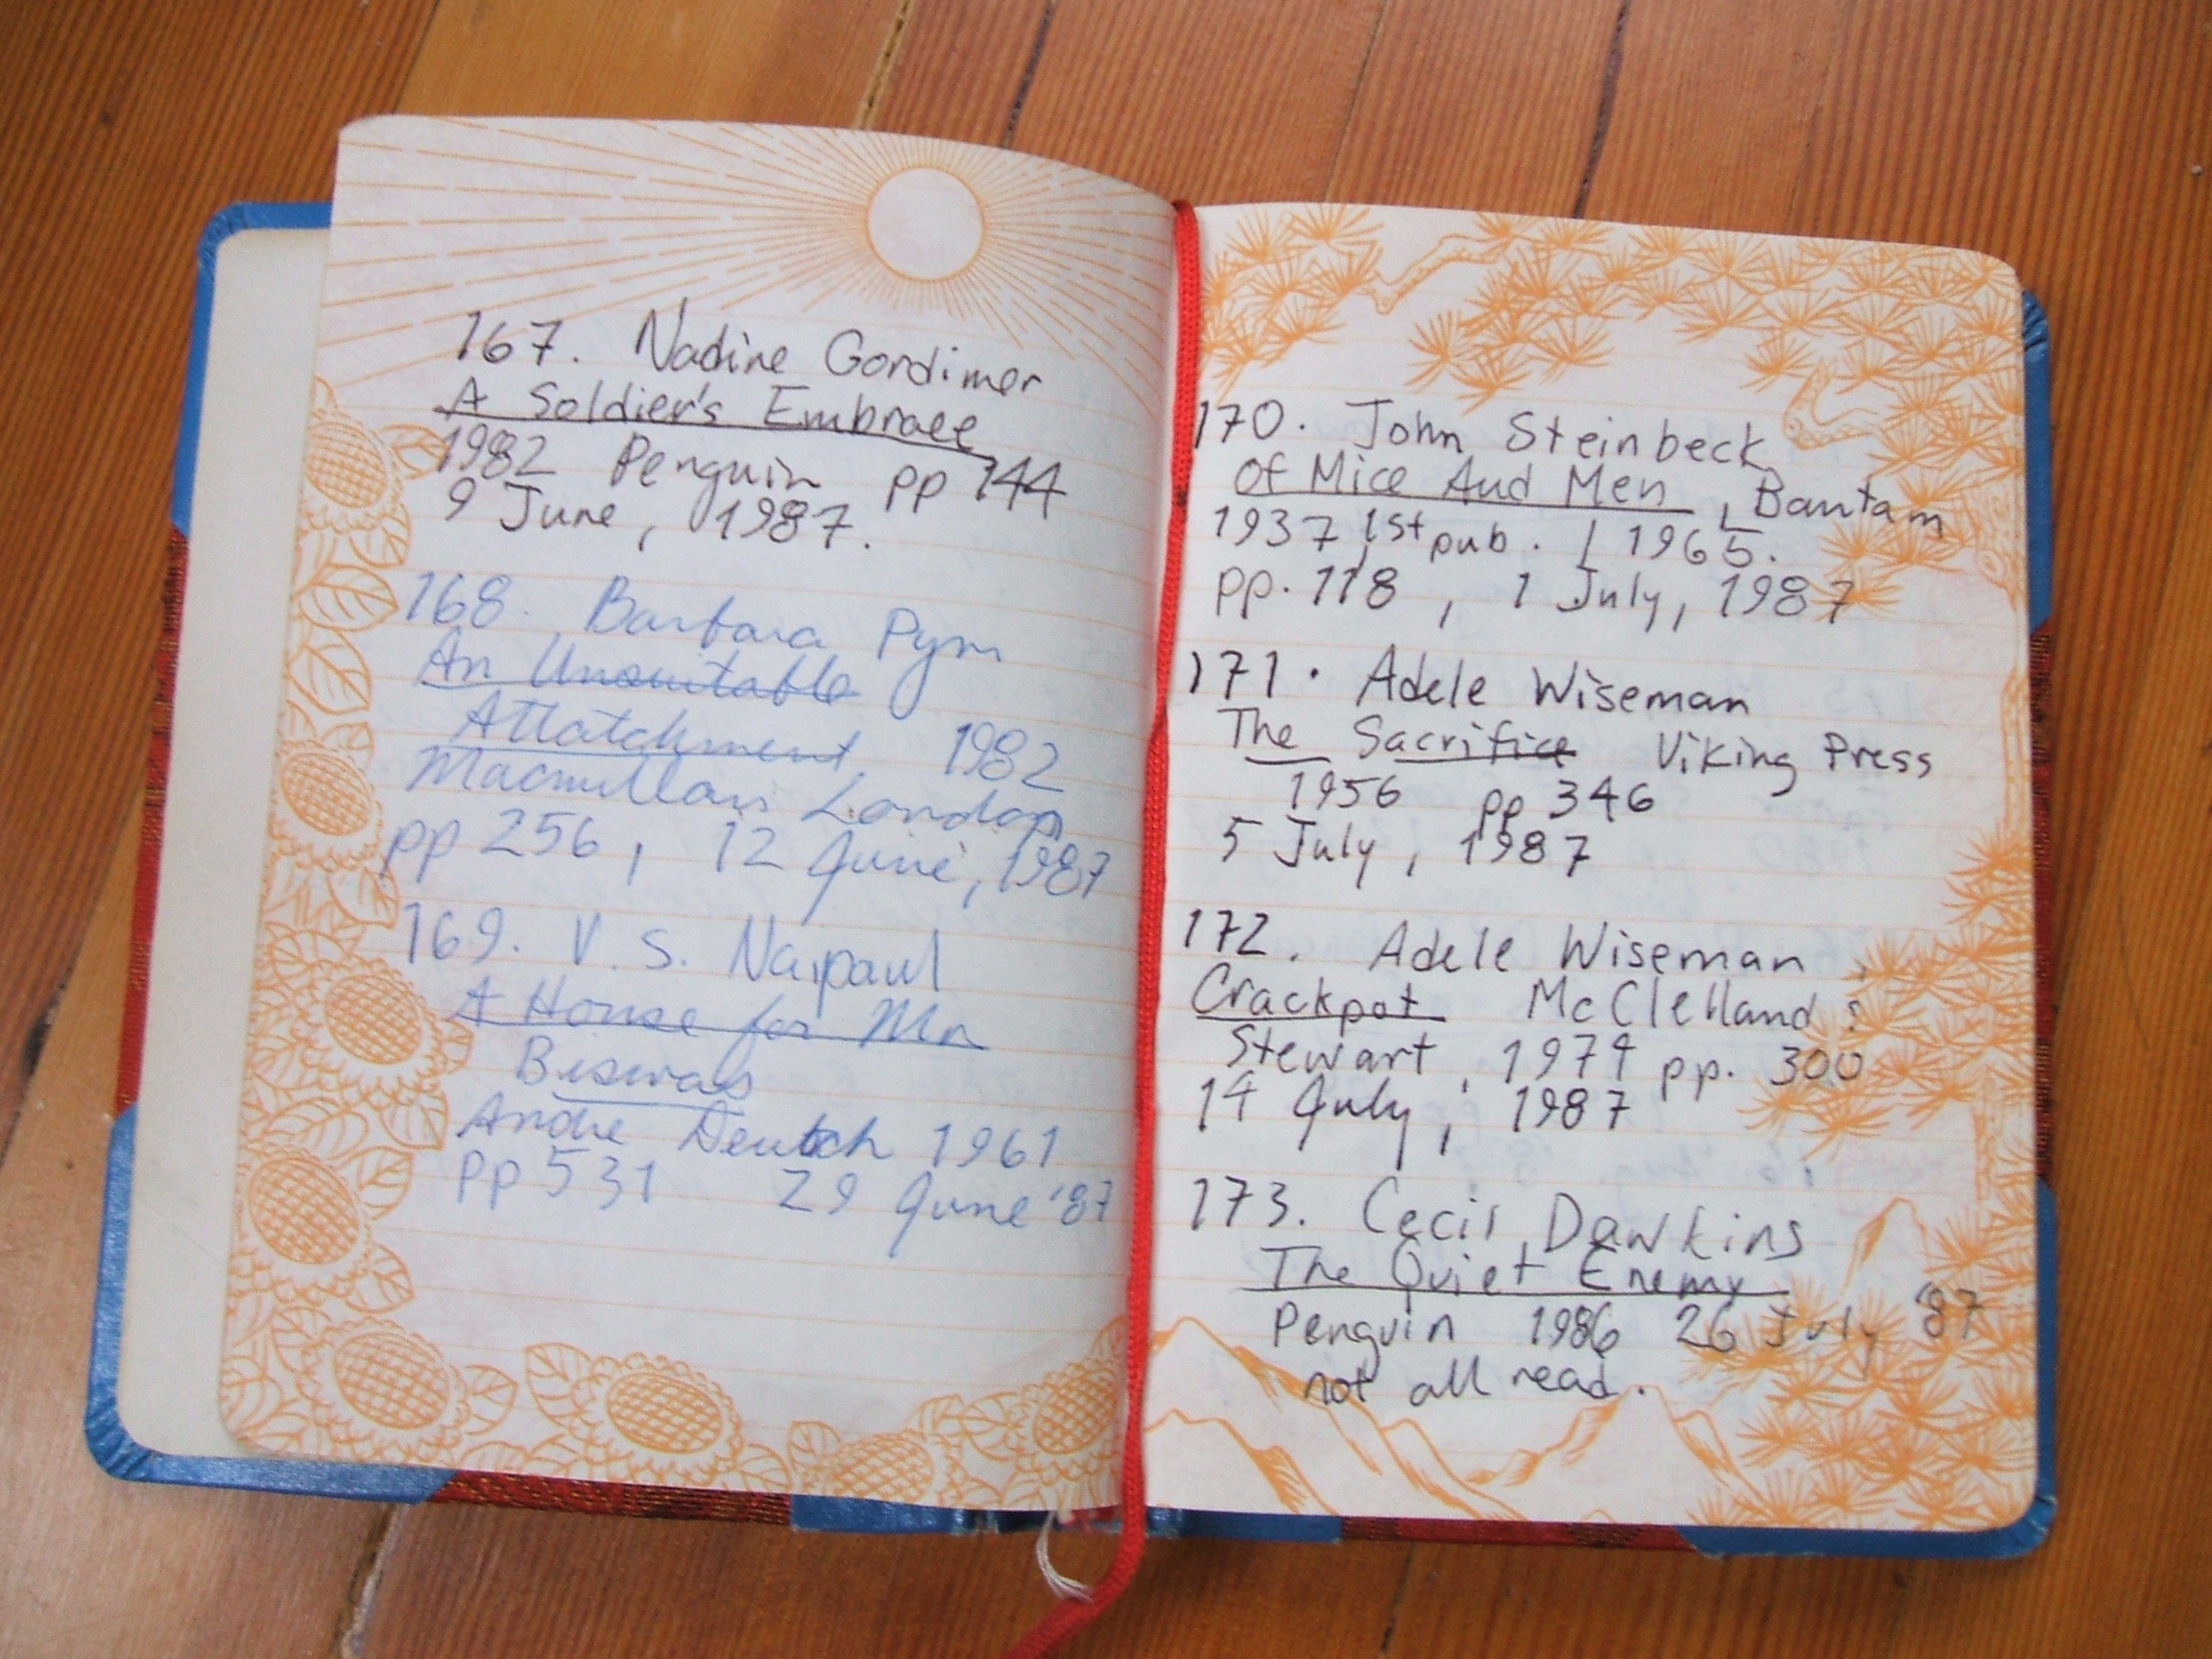 167. Nadine Gordimer
A Soldier's Embrace
1982 Penguin pp 144
9 June, 1987.
168. Barbara Pym
An Unsuitable
Attatchment, 1982
Macmillan London
pp 256, 12 June, 1987
169. V. S. Naipaul
A House for Mr
Biswas
Andre Deutch 1961
pp 531 29 June '87
170. John Steinbeck
Of Mice And Men, Bantam
1937 1st pub. / 1965.
pp. 118, 1 July, 1987
171. Adele Wiseman
The Sacrifice Viking Press
1956 pp 346
5 July, 1987
172. Adele Wiseman
Crackpot McClelland &
Stewart, 1974 pp. 300
14 July, 1987
173. Cecil Dawkins
The Quiet Enemy
Penguin 1986 26 July '87
not all read.